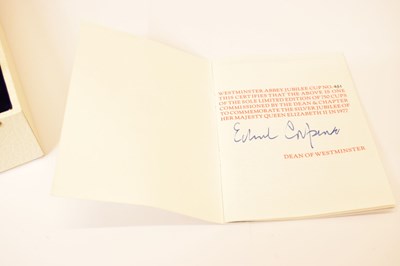 WESTMINSTER ABBEY JUBILEE CUP NO.
THIS CERTIFIES THAT THE ABOVE IS ONE
OF THE SOLE LIMITED EDITION OF 750 CUPS
COMMISSIONED BY THE DEAN & CHAPTER
TO COMMEMORATE THE SILVER JUBILEE OF
HER MAJESTY QUEEN ELIZABETH II IN 1977
DEAN OF WESTMINSTER